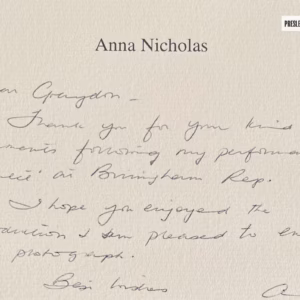 PRESLE
Anna Nicholas
Graydon -
Thank you for your kind
ments following my performa
at Birmingham Rep.
I hope you enjoyed the
duction I am pleased to en
photograph.
Best wishes